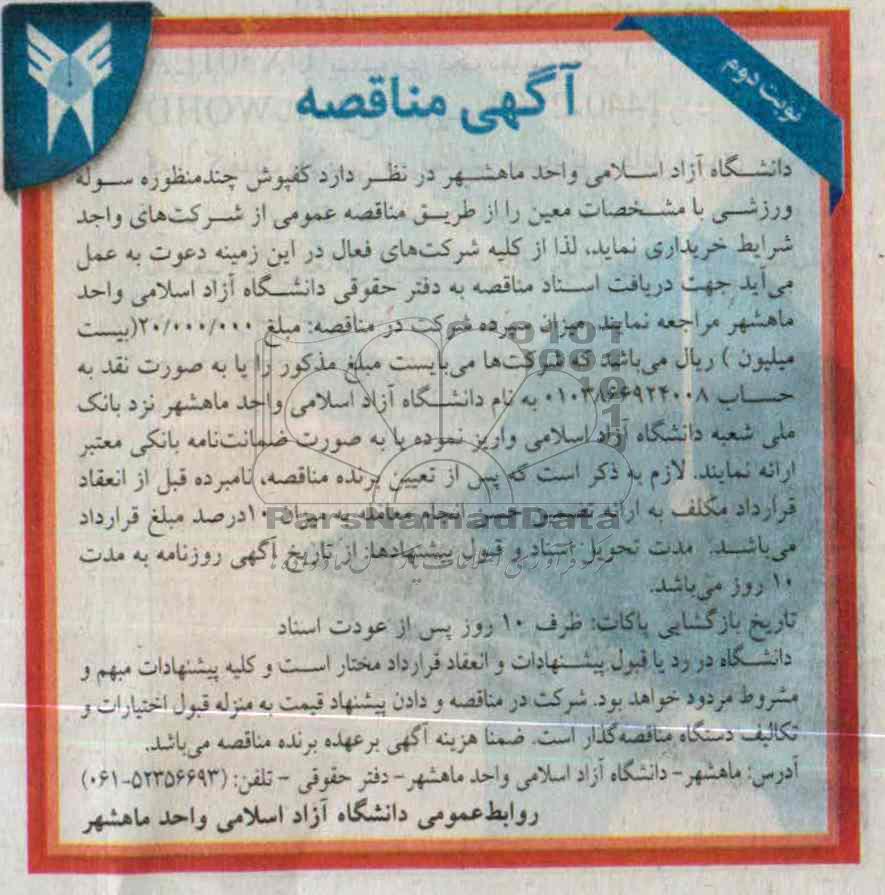 نوبت دوم
آگهی مناقصه
دانشگاه آزاد اسلامی واحد ماهشهر در نظر دارد کفپوش چندمنظوره سوله
ورزشی با مشخصات معین را از طریق مناقصه عمومی از شرکت‌های واجد
شرایط خریداری نماید، لذا از کلیه شرکت‌های فعال در این زمینه دعوت به عمل
می‌آید جهت دریافت اسناد مناقصه به دفتر حقوقی دانشگاه آزاد اسلامی واحد
ماهشهر مراجعه نمایند. میزان سپرده شرکت در مناقصه: مبلغ ۲۰/۰۰۰/۰۰۰(بیست
میلیون ) ریال می‌باشد که شرکت‌ها می‌بایست مبلغ مذکور را یا به صورت نقد به
حساب ۰۱۰۳۸۶۶۹۲۴۰۰۸ به نام دانشگاه آزاد اسلامی واحد ماهشهر نزد بانک
ملی شعبه دانشگاه آزاد اسلامی واریز نموده یا به صورت ضمانت‌نامه بانکی معتبر
ارائه نمایند. لازم به ذکر است که پس از تعیین برنده مناقصه، نامبرده قبل از انعقاد
قرارداد مکلف به ارائه تضمین حسن انجام معامله به میزان ۱۰درصد مبلغ قرارداد
می‌باشد. مدت تحویل اسناد و قبول پیشنهادها از تاریخ آگهی روزنامه به مدت
۱۰ روز می‌باشد.
تاریخ بازگشایی پاکات: ظرف ۱۰ روز پس از عودت اسناد
دانشگاه در رد یا قبول پیشنهادات و انعقاد قرارداد مختار است و کلیه پیشنهادات مبهم و
مشروط مردود خواهد بود. شرکت در مناقصه و دادن پیشنهاد قیمت به منزله قبول اختیارات و
تکالیف دستگاه مناقصه‌گذار است. ضمنا هزینه آگهی برعهده برنده مناقصه می‌باشد.
آدرس: ماهشهر- دانشگاه آزاد اسلامی واحد ماهشهر- دفتر حقوقی - تلفن: (۵۲۳۵۶۶۹۳-۰۶۱)
روابط‌عمومی دانشگاه آزاد اسلامی واحد ماهشهر
ParsNamadData